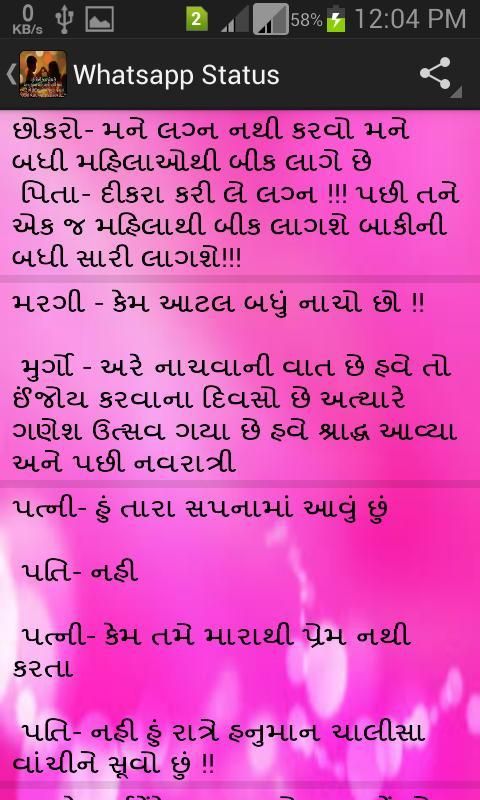 0
KB/s
2
58%
12:04 PM
Whatsapp Status
છોકરો- મને લગ્ન નથી કરવો મને
બધી મહિલાઓથી બીક લાગે છે
પિતા- દીકરા કરી લે લગ્ન !!! પછી તને
એક જ મહિલાથી બીક લાગશે બાકીની
બધી સારી લાગશે!!!
મરગી - કેમ આટલ બધું નાચો છો !!
મુર્ગો - અરે નાચવાની વાત છે હવે તો
ઈંજોય કરવાના દિવસો છે અત્યારે
ગણેશ ઉત્સવ ગયા છે હવે શ્રાદ્ધ આવ્યા
અને પછી નવરાત્રી
પત્ની- હું તારા સપનામાં આવું છું
પતિ- નહી
પત્ની- કેમ તમે મારાથી પ્રેમ નથી
કરતા
પતિ- નહી હું રાત્રે હનુમાન ચાલીસા
વાંચીને સૂવો છું !!